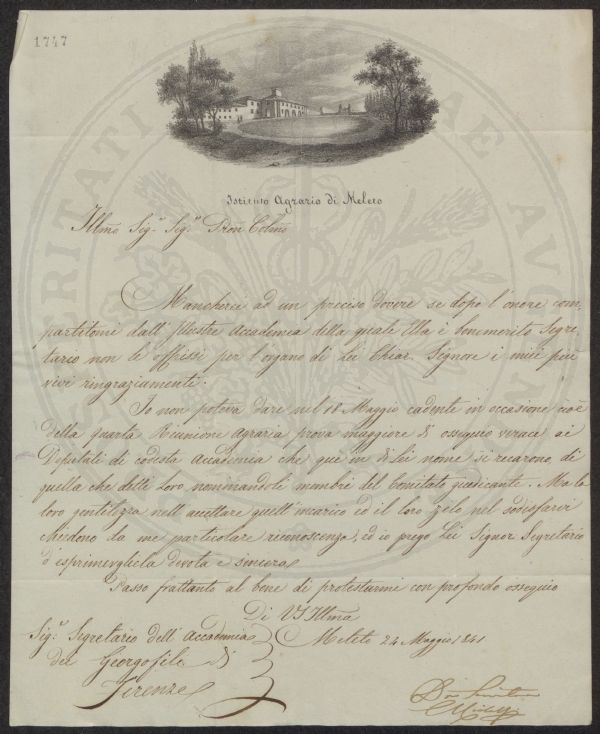 1747
Istituto Agrario di Meleto
Illmo Sigr. Sigr. Pron Colmo
Mancherei ad un preciso dovere se dopo l'onore com-
partitomi dall'Illustre Accademia della quale Ella è benemerito Segre-
tario non le offrissi per l'organo di Lei Chiar. Signore i miei più
vivi ringraziamenti.
Io non poteva dare nel 18 Maggio cadente in occasione cioè
della quarta Riunione Agraria prova maggiore di ossequio verace ai
Deputati di codesta Accademia che qui in di lei nome si recarono, di
quella che detti loro nominandoli membri del Comitato giudicante. Ma la
loro gentilezza nell'accettare quell'incarico ed il loro zelo nel sodisfarvi
chiedono da me particolare riconoscenza, ed io prego Lei Signor Segretario
d'esprimergliela devota e sincera
Passo frattanto al bene di protestarmi con profondo ossequio
Di VS Illma
Sigr. Segretario dell'Accademia
dei Georgofili di
Firenze
Meleto 24 Maggio 1841